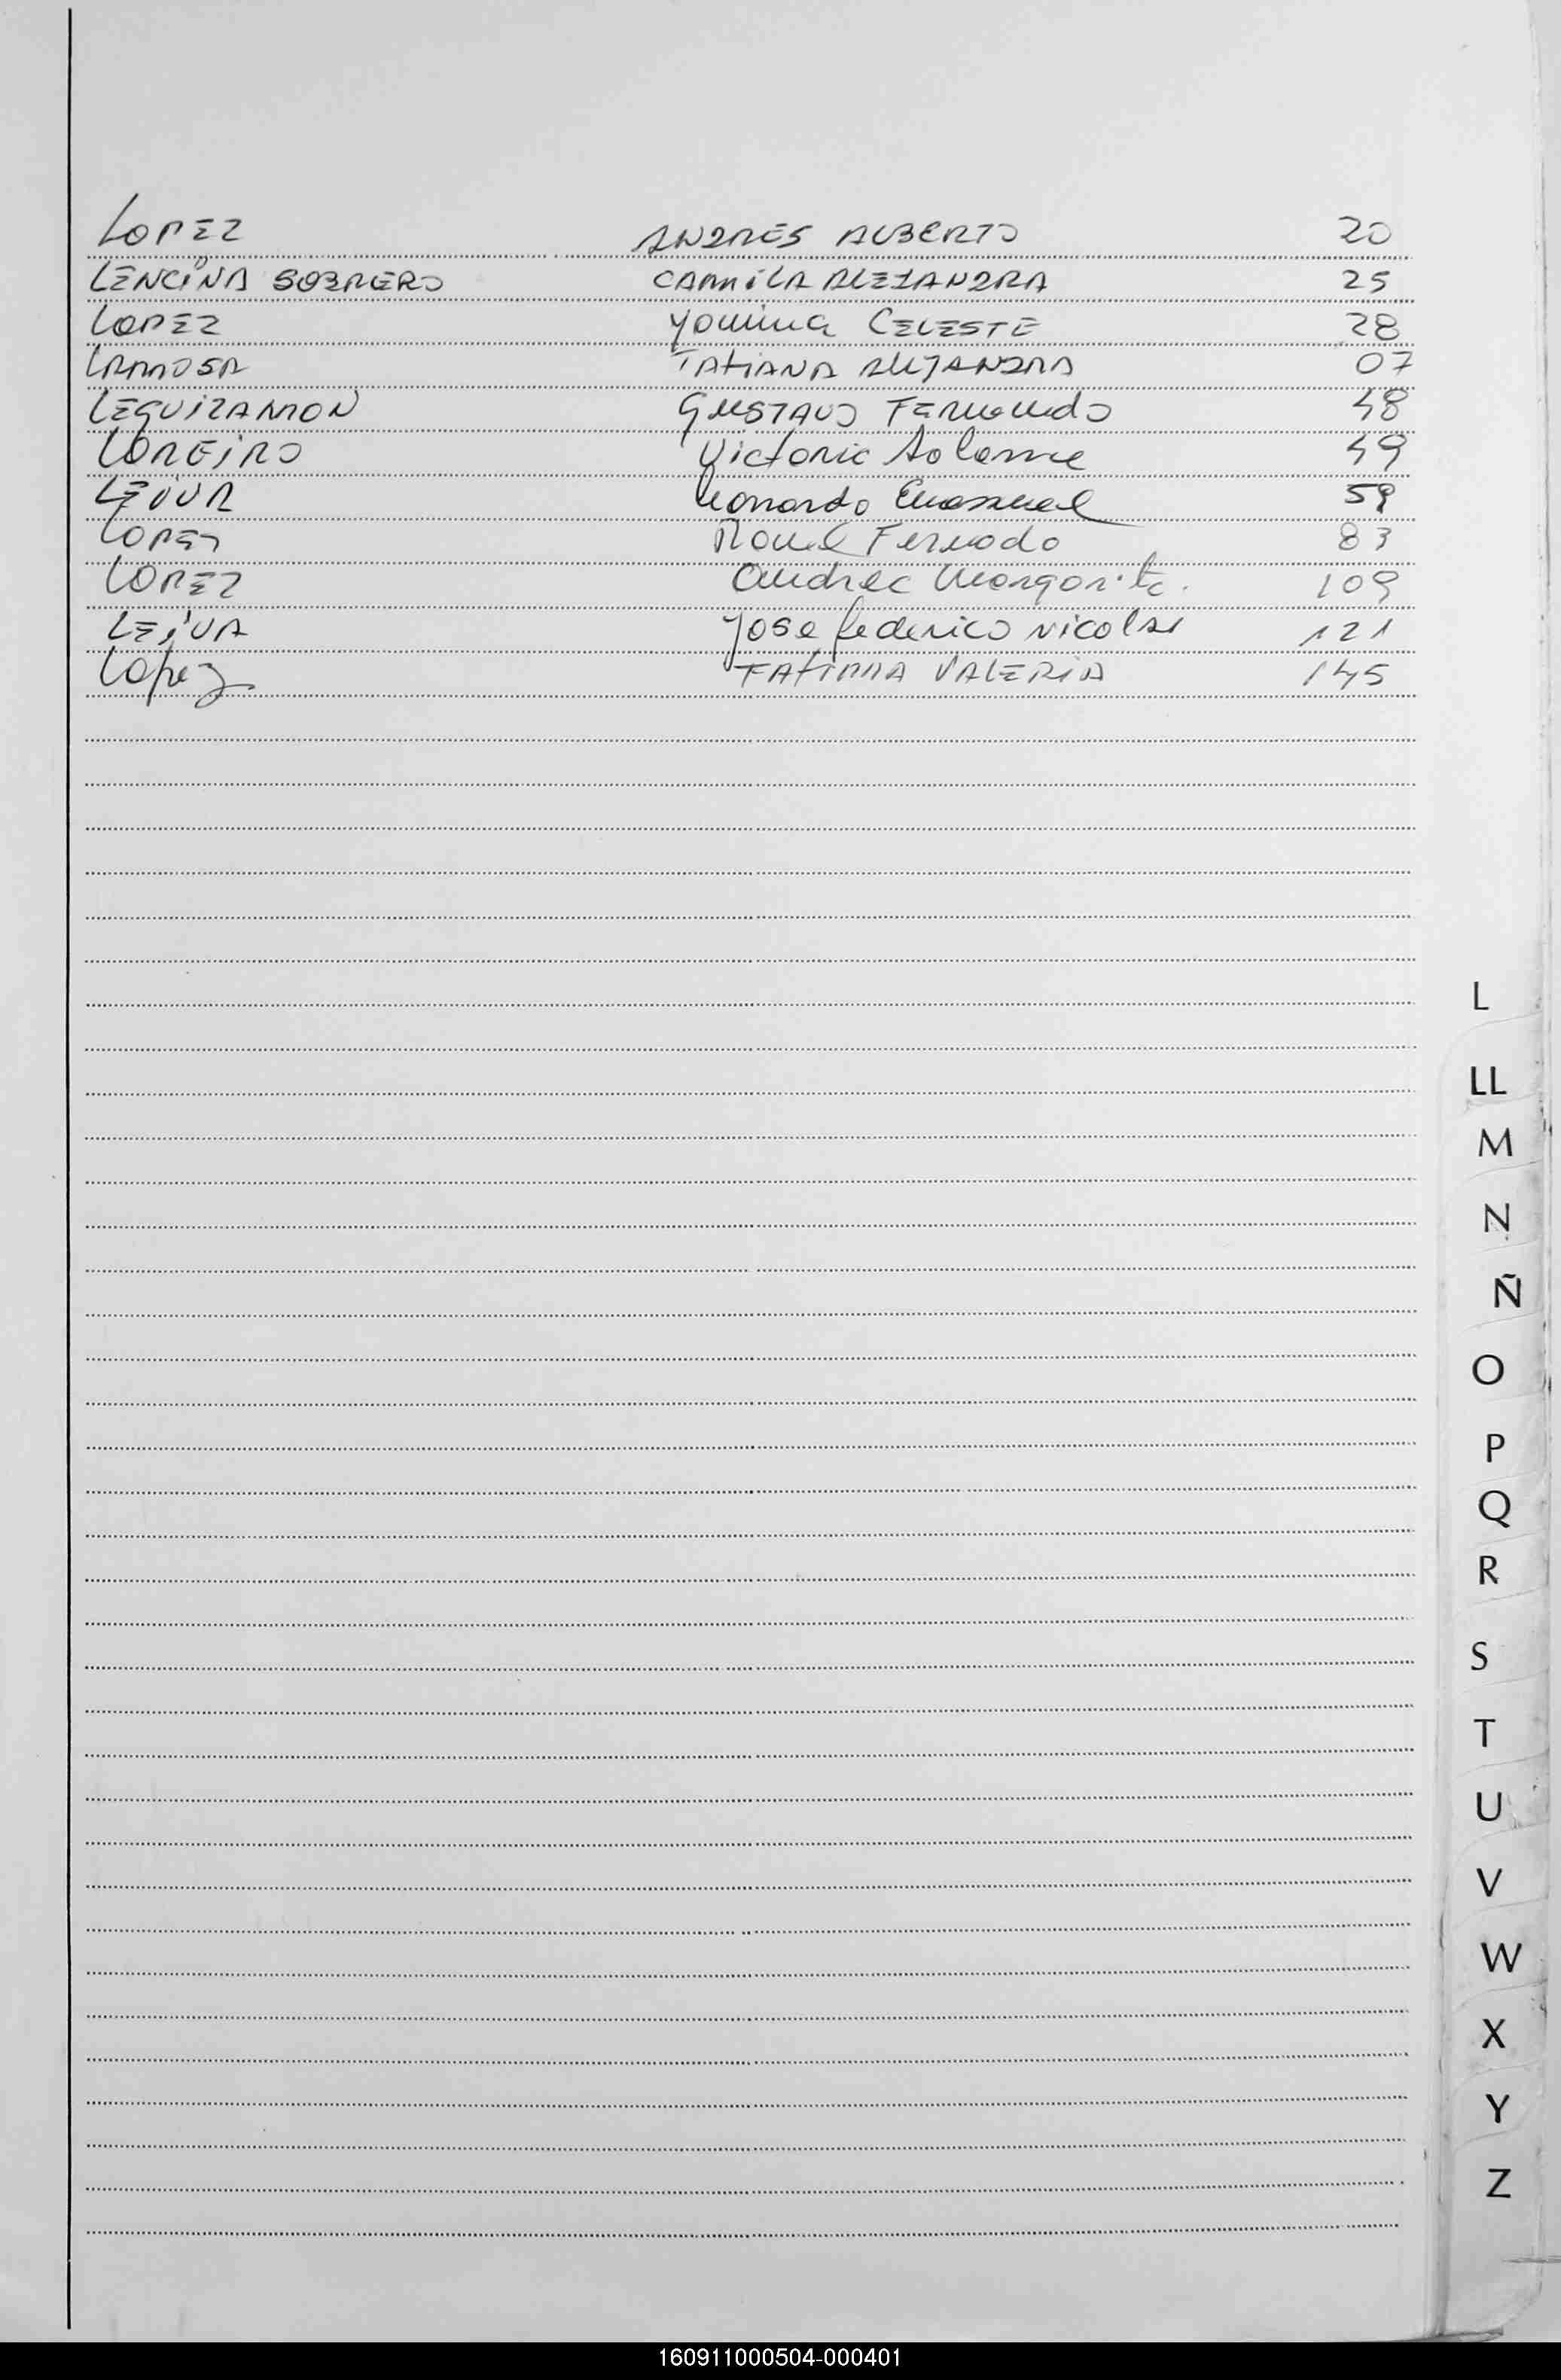 LOPEZ ANDRES ALBERTO 20
LENCINA SOBRERO CAMILA ALEJANDRA 25
LOPEZ Yomina CELESTE 28
LAMOSA TATIANA ALEJANDRA 07
LEGUIZAMON GUSTAVO Fernando 48
LOREIRO Victoria Solange 49
LEIVA Leonardo Emanuel 59
LOPEZ Fernado 83
LOPEZ Andrea Margarita. 109
LEIVA Jose federico nicolas 121
Lopez FATIMA VALERIA 145
L
LL
M
N
Ñ
O
P
Q
R
S
T
U
V
W
X
Y
Z
160911000504-000401